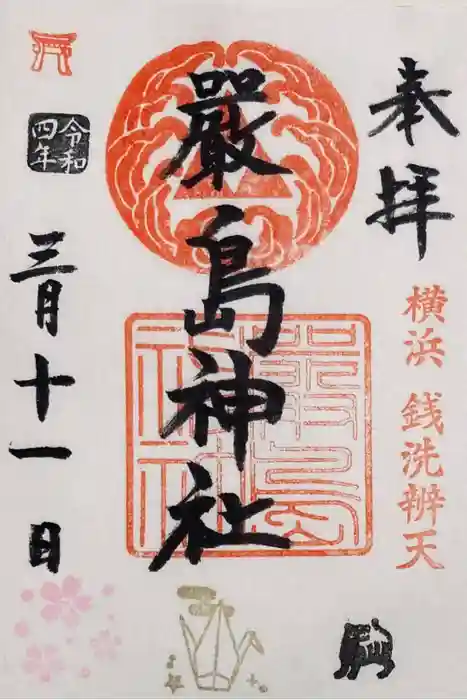 奉拝
横浜 銭洗辨天
嚴島神社
令和
四年
三月十一日